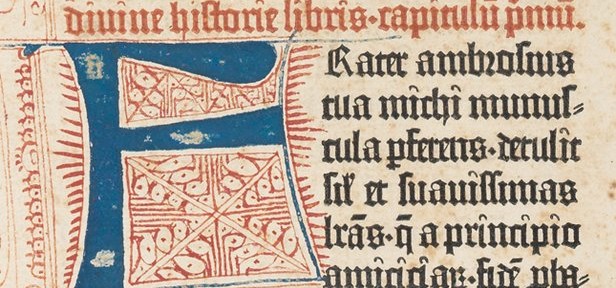 diuine historie libris·capitulū pmū.
FRater ambrosius
tua michi munus-
cula pferens·detulit
sil' et suauissimas
lrās·q̄ a principio
amiciciaꝝ·fidē pba-